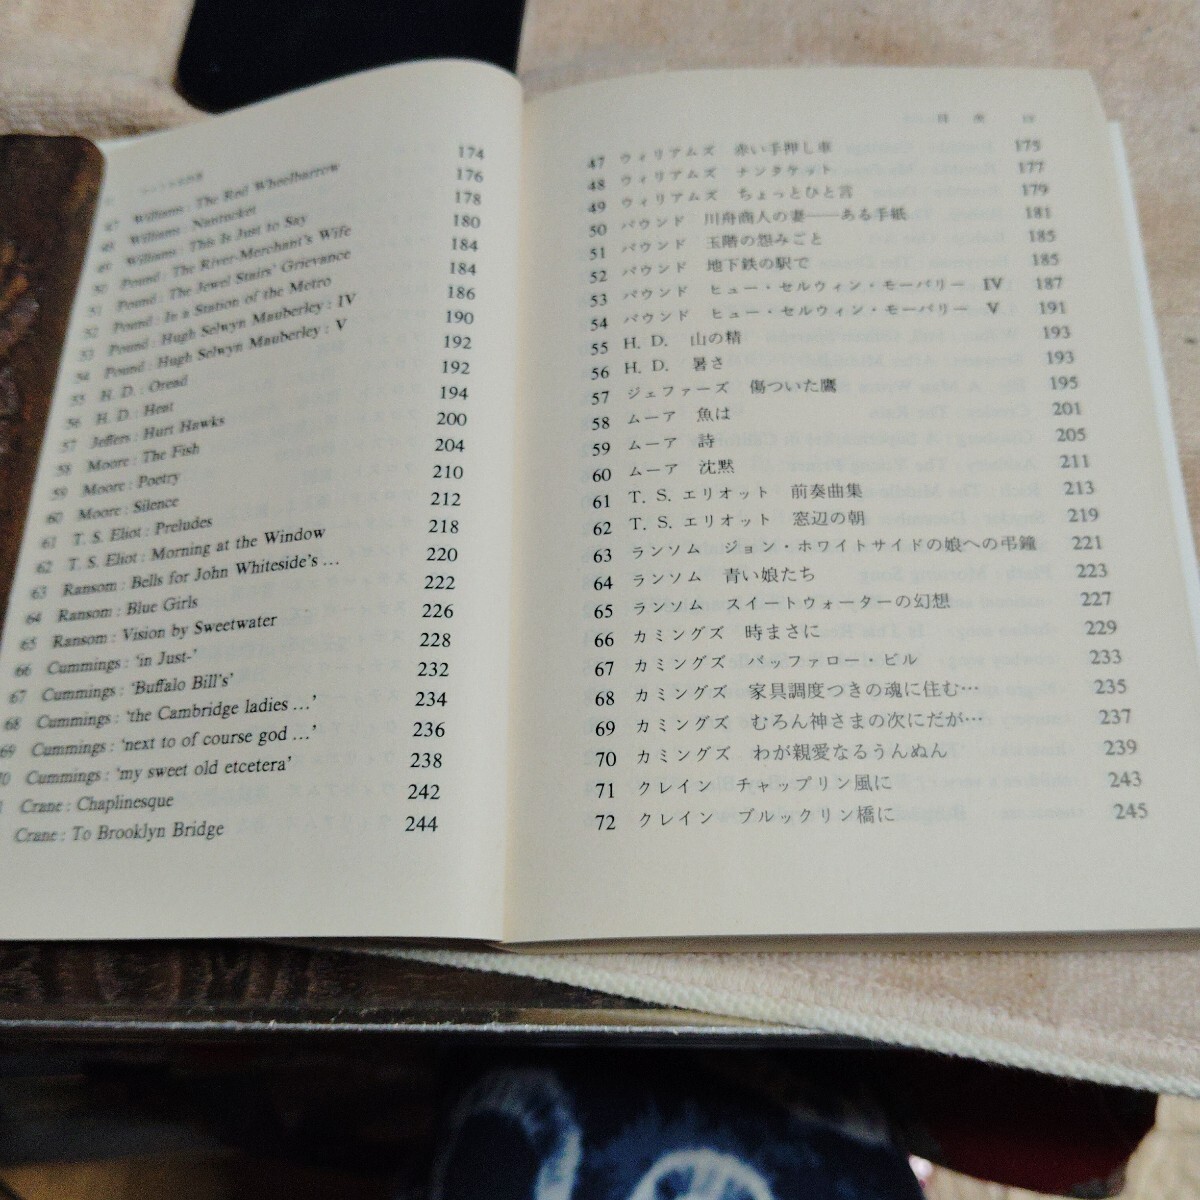 47 Williams : The Red Wheelbarrow 174
48 Williams : Nantucket 176
49 Williams : This Is Just to Say 178
50 Pound : The River-Merchant's Wife 180
51 Pound : The Jewel Stairs' Grievance 184
52 Pound : In a Station of the Metro 184
53 Pound : Hugh Selwyn Mauberley : IV 186
54 Pound : Hugh Selwyn Mauberley : V 190
55 H. D. : Oread 192
56 H. D. : Heat 192
57 Jeffers : Hurt Hawks 194
58 Moore : The Fish 200
59 Moore : Poetry 204
60 Moore : Silence 210
61 T. S. Eliot : Preludes 212
62 T. S. Eliot : Morning at the Window 218
63 Ransom : Bells for John Whiteside's … 220
64 Ransom : Blue Girls 222
65 Ransom : Vision by Sweetwater 226
66 Cummings : 'in Just-' 228
67 Cummings : 'Buffalo Bill's' 232
68 Cummings : 'the Cambridge ladies …' 234
69 Cummings : 'next to of course god …' 236
70 Cummings : 'my sweet old etcetera' 238
Crane : Chaplinesque 242
Crane : To Brooklyn Bridge 244
目次
47 ウィリアムズ 赤い手押し車 175
48 ウィリアムズ ナンタケット 177
49 ウィリアムズ ちょっとひと言 179
50 パウンド 川舟商人の妻――ある手紙 181
51 パウンド 玉階の怨みごと 185
52 パウンド 地下鉄の駅で 185
53 パウンド ヒュー・セルウィン・モーバリー IV 187
54 パウンド ヒュー・セルウィン・モーバリー V 191
55 H. D. 山の精 193
56 H. D. 暑さ 193
57 ジェファーズ 傷ついた鷹 195
58 ムーア 魚は 201
59 ムーア 詩 205
60 ムーア 沈黙 211
61 T. S. エリオット 前奏曲集 213
62 T. S. エリオット 窓辺の朝 219
63 ランソム ジョン・ホワイトサイドの娘への弔鐘 221
64 ランソム 青い娘たち 223
65 ランソム スイートウォーターの幻想 227
66 カミングズ 時まさに 229
67 カミングズ バッファロー・ビル 233
68 カミングズ 家具調度つきの魂に住む… 235
69 カミングズ むろん神さまの次にだが… 237
70 カミングズ わが親愛なるうんぬん 239
71 クレイン チャップリン風に 243
72 クレイン ブルックリン橋に 245